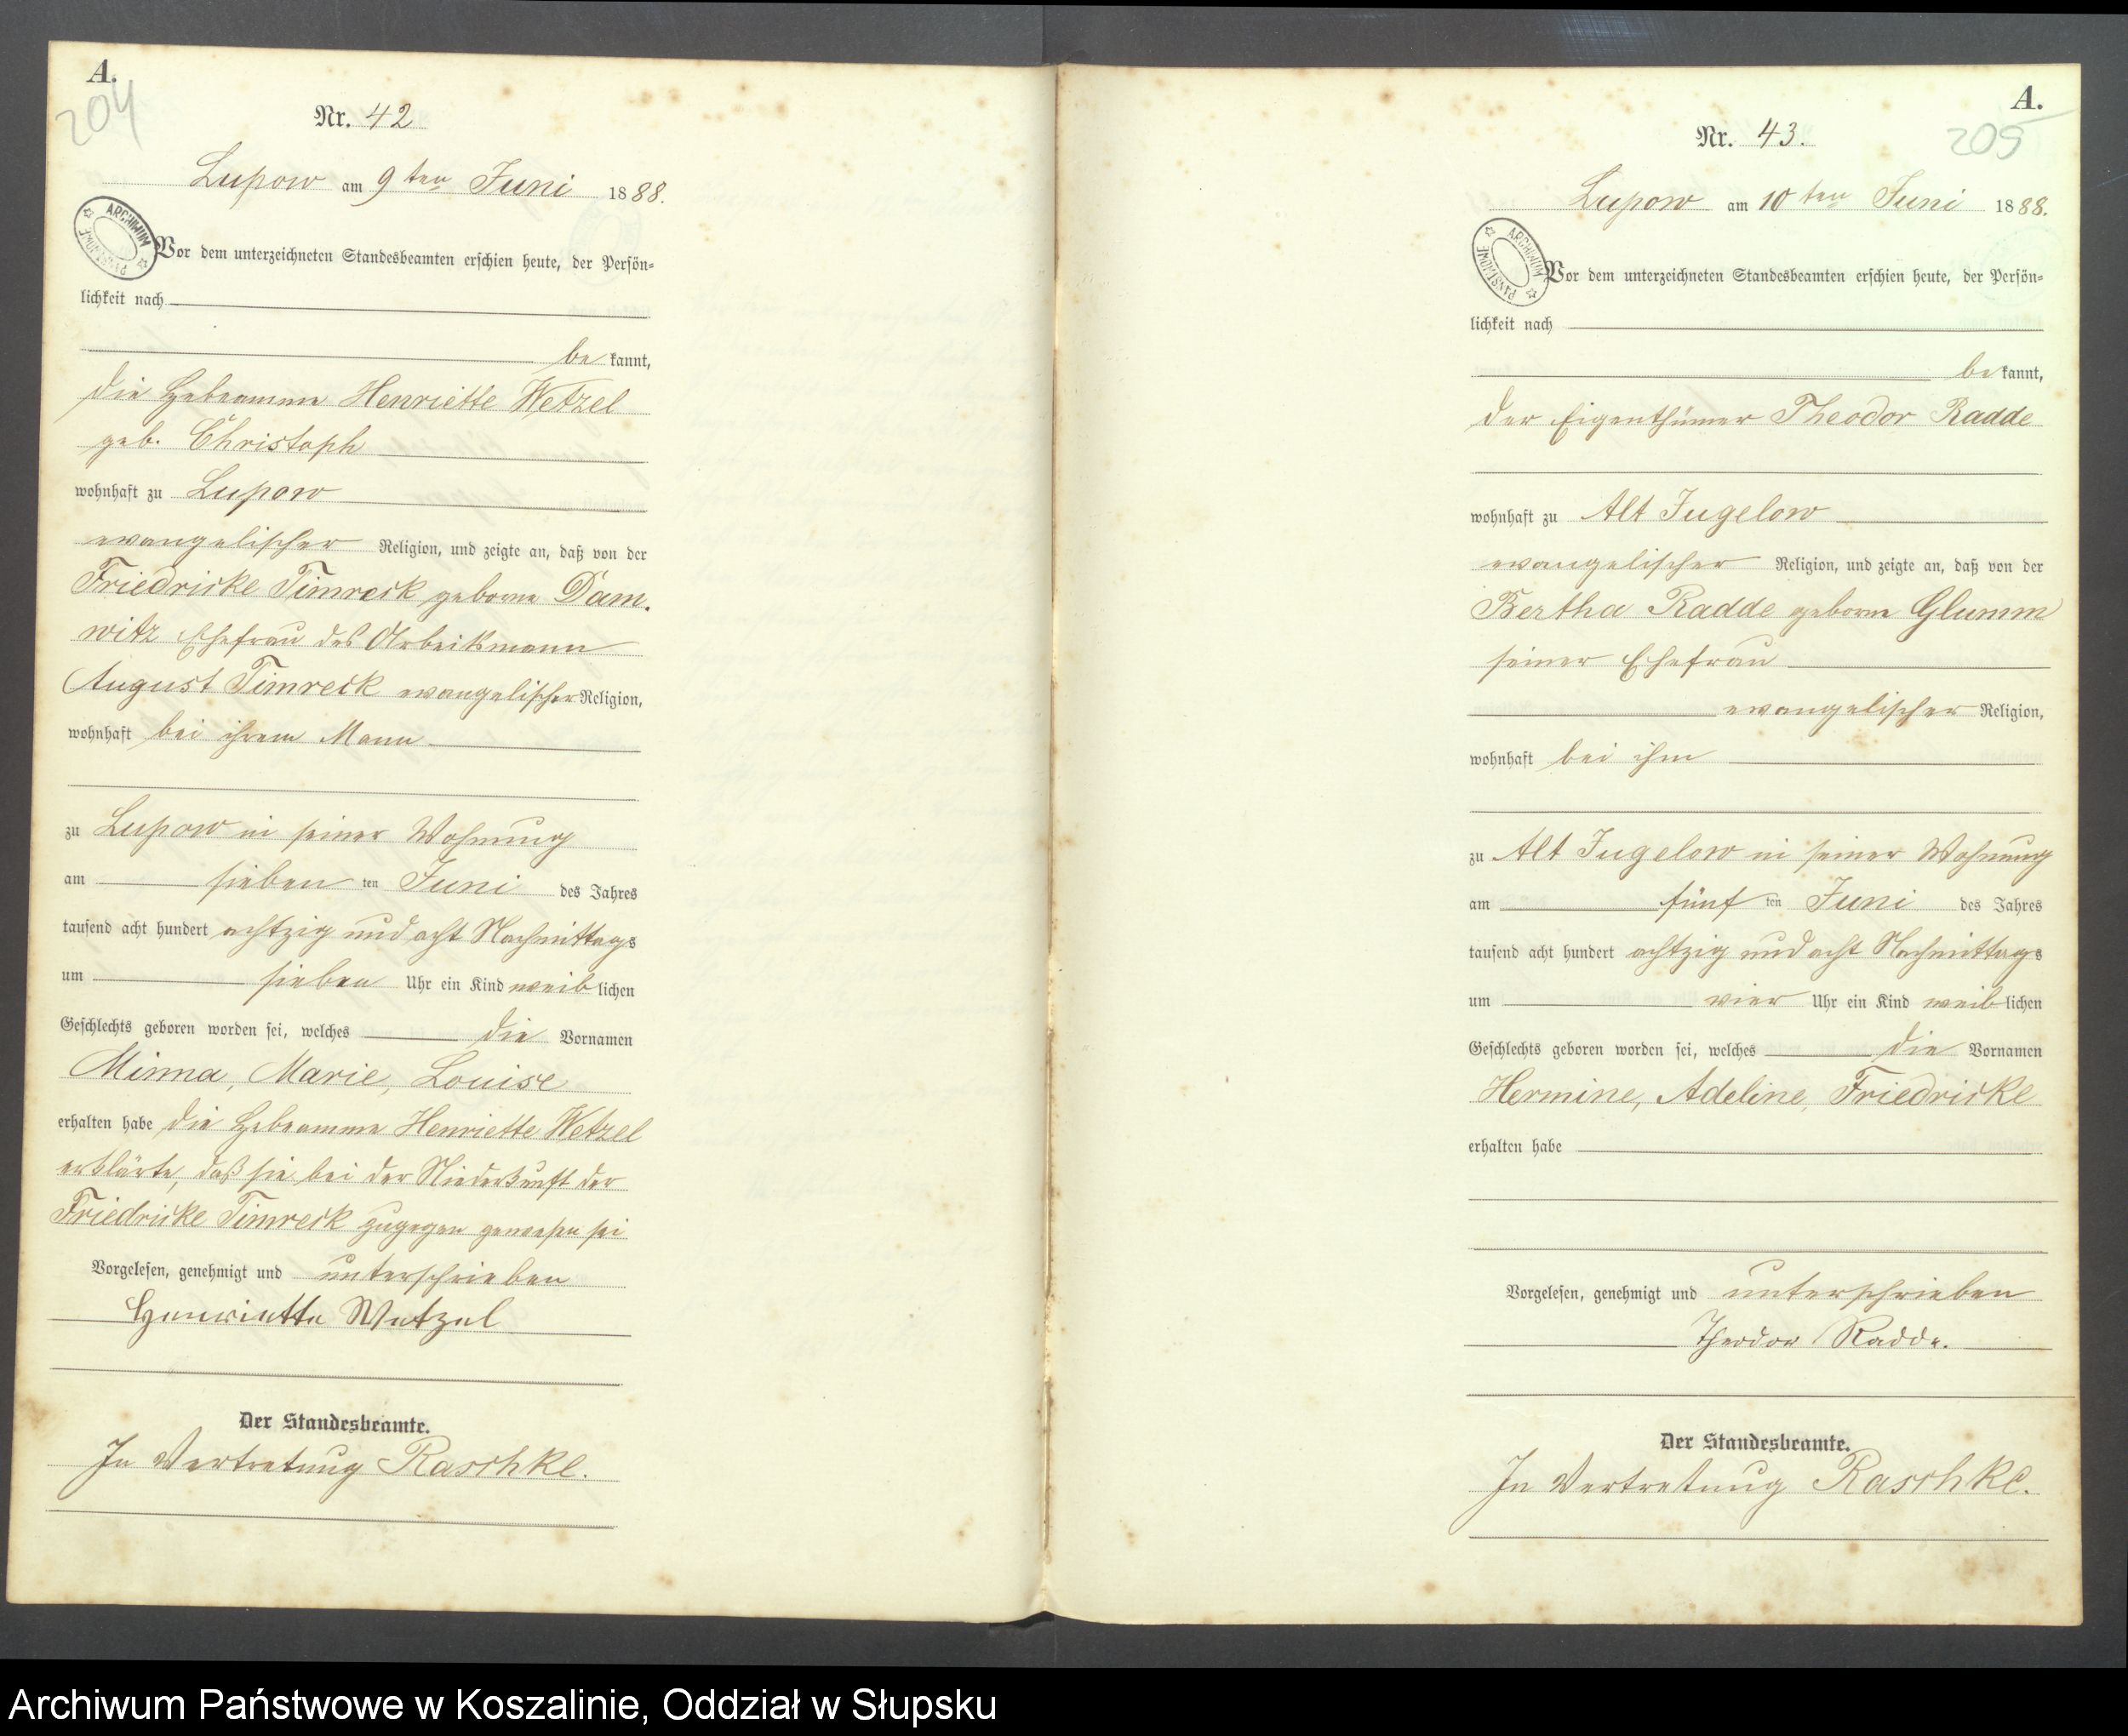 A.
204
Nr. 42
Lupow am 9ten Juni 1888.
ARCHIWUM PAŃSTWOWE
Vor dem unterzeichneten Standesbeamten erschien heute, der Persön-
lichkeit nach
bekannt,
die Hebeamme Henriette Wetzel
geb. Christoph
wohnhaft zu Lupow
evangelischer Religion, und zeigte an, daß von der
Friedricke Timreck geborne Dam-
witz Ehefrau des Arbeitsmann
August Timreck evangelischer Religion,
wohnhaft bei ihrem Mann
zu Lupow in seiner Wohnung
am sieben ten Juni des Jahres
tausend acht hundert achtzig und acht Nachmittags
um sieben Uhr ein Kind weiblichen
Geschlechts geboren worden sei, welches die Vornamen
Minna, Marie, Louise
erhalten habe die Hebeamme Henriette Wetzel
erklärte, daß sie bei der Niederkunft der
Friedricke Timreck zugegen gewesen sei
Vorgelesen, genehmigt und unterschrieben
Henriette Wetzel
Der Standesbeamte.
In Vertretung Raschke.
A.
205
Nr. 43.
Lupow am 10ten Juni 1888.
ARCHIWUM PAŃSTWOWE
Vor dem unterzeichneten Standesbeamten erschien heute, der Persön-
lichkeit nach
bekannt,
der Eigenthümer Theodor Radde
wohnhaft zu Alt Jugelow
evangelischer Religion, und zeigte an, daß von der
Bertha Radde geborne Glumm
seiner Ehefrau
evangelischer Religion,
wohnhaft bei ihm
zu Alt Jugelow in seiner Wohnung
am fünf ten Juni des Jahres
tausend acht hundert achtzig und acht Nachmittags
um vier Uhr ein Kind weiblichen
Geschlechts geboren worden sei, welches die Vornamen
Hermine, Adeline, Friedricke
erhalten habe
Vorgelesen, genehmigt und unterschrieben
Theodor Radde.
Der Standesbeamte.
In Vertretung Raschke.
Archiwum Państwowe w Koszalinie, Oddział w Słupsku